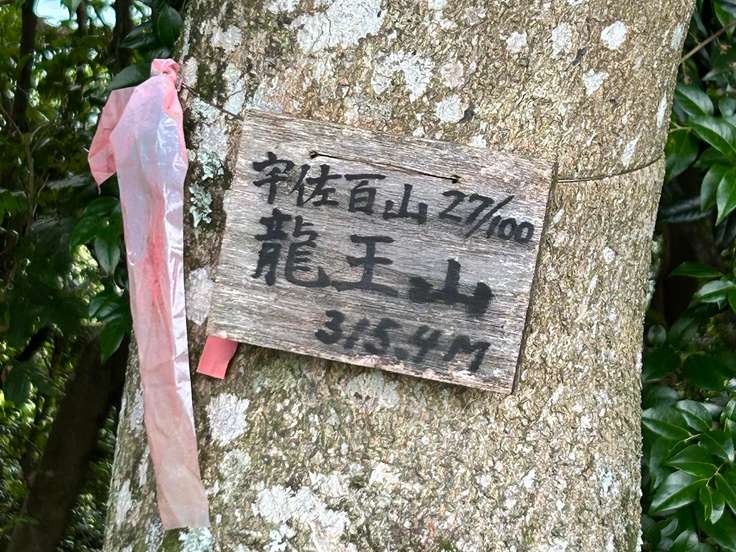 宇佐百山 27/100
龍王山
315.4M